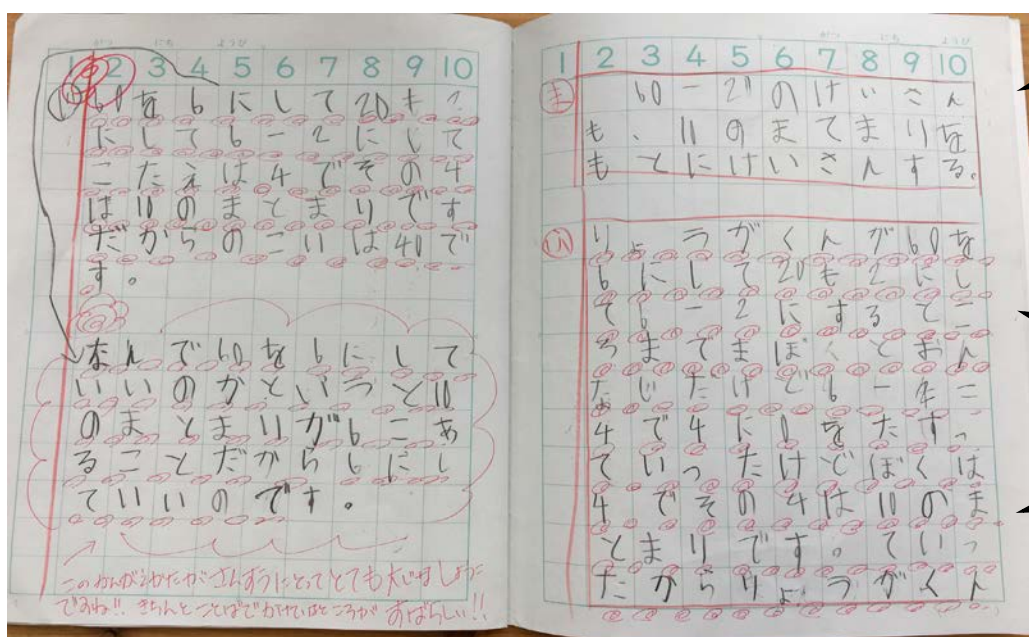 がつ にち ようび
1 2 3 4 5 6 7 8 9 10
60を6にして20も2
にして6-2にして
こたえは4でその4
は10のまとまりです
だからのこいは40で
す。
なんで60を6にして
いいのかというと10
のまとまりが6こあ
ることだから6にし
ていいのです。
このかんがえかたがさんすうにとってとても大じな
ですね!! きちんとことばでかけているところが すばらしい!!
がつ にち ようび
1 2 3 4 5 6 7 8 9 10
ま 60-20のけいさん
も、10のまてまりを
もとにけいさんする。
い りょうがくんが60を
6にして20も2にし
て6-2にするてこ
ろまでまぼくとおん
なじだけで6-こ
4で4に0をたすっ
ていったけどぼくは
4でその4は10のま
とまりです。ていっ
たからりょうがくん